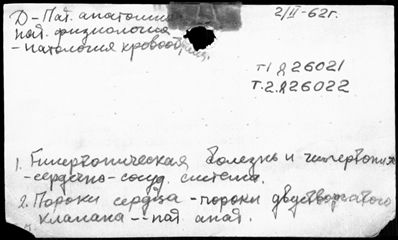 Д-Пат. анатомия
пат. физиология
-патология кровообращ.
2/II-62г.
т1 д26021
т.2.д26022
1. Гипертоническая болезнь и гипертония
-сердечно-сосуд. система.
2. Пороки сердца - пороки двустворчатого
клапана -- пат. анат.